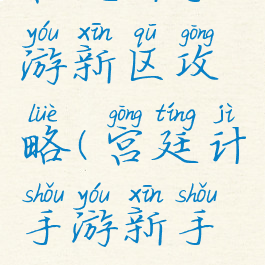 yóu xīn qū gōng
游新区攻
lüè gōng tíng jì
略(宫廷计
shǒu yóu xīn shǒu
手游新手